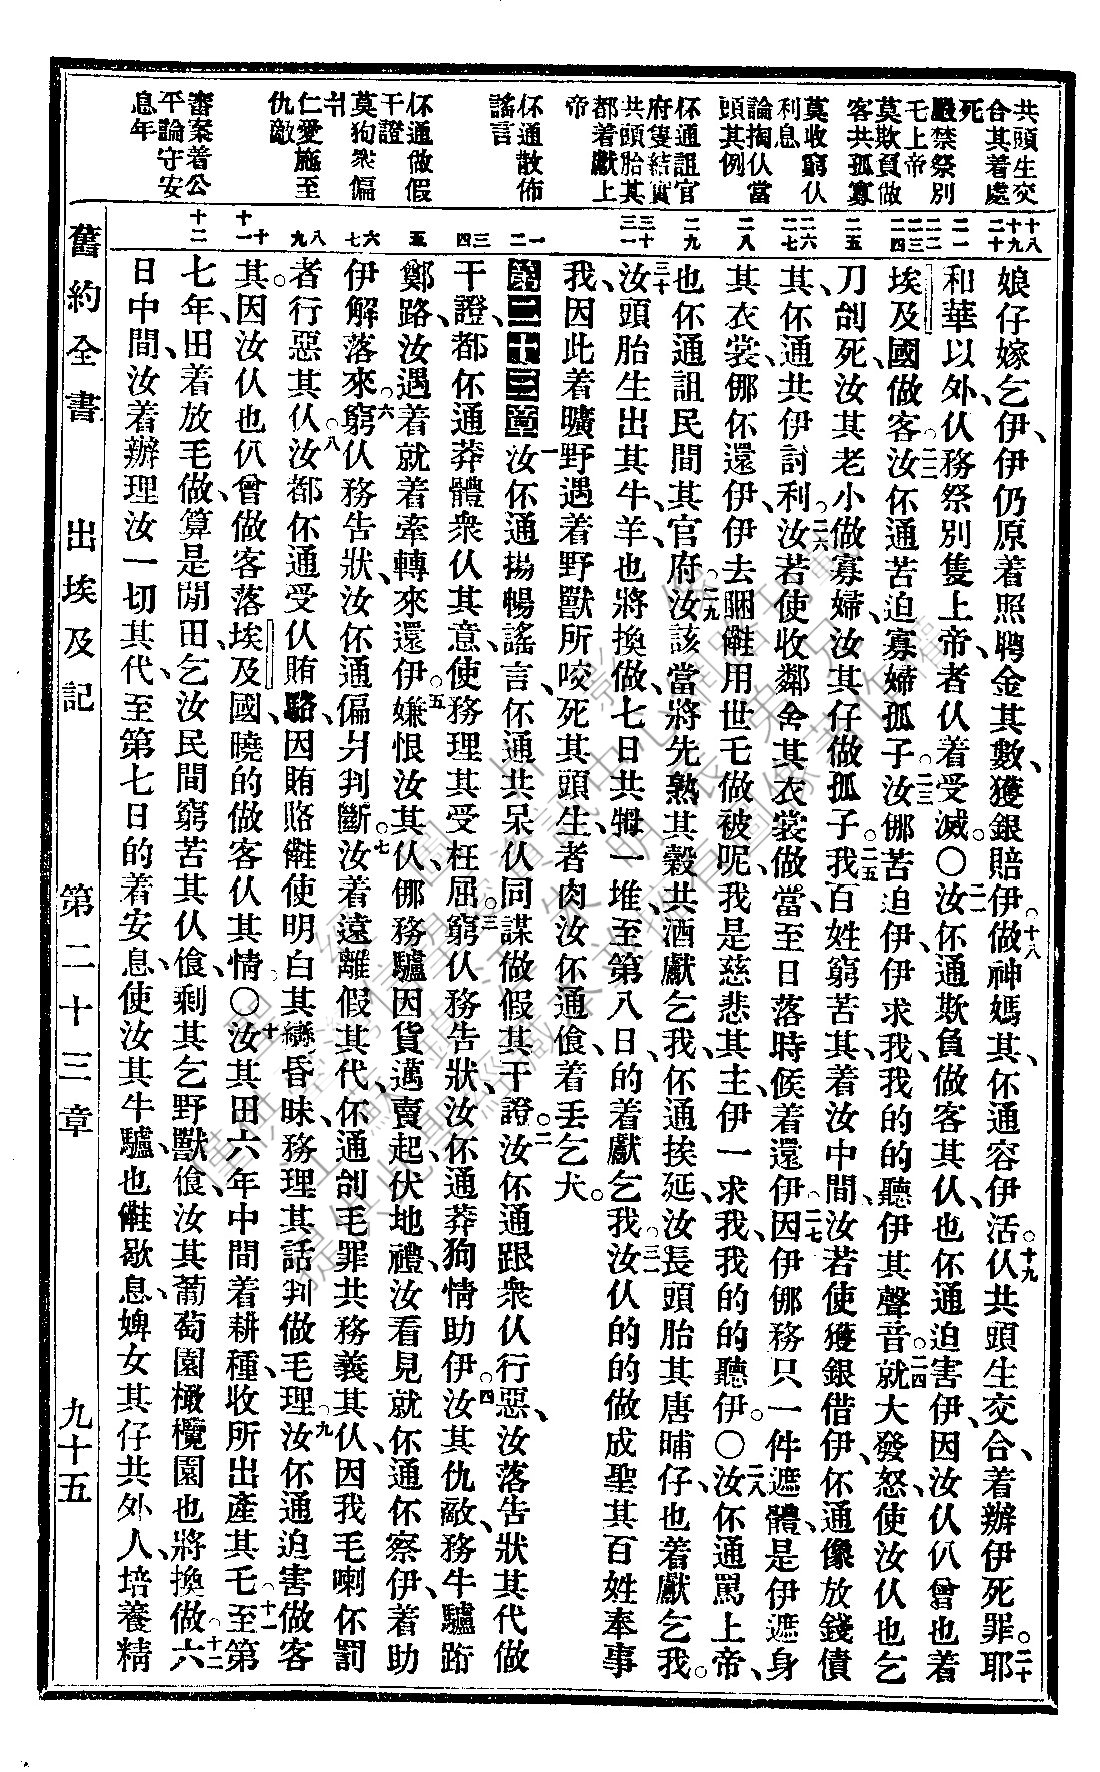 共頭生交
合其着處
死
嚴禁祭別
乇上帝
莫欺負做
客共孤寡
莫收窮仈
利息
論掏仈當
頭其例
伓通詛官
府隻結實
共頭胎其
都着獻上
帝
伓通散佈
謠言
伓通做假
干證
莫狥衆偏
爿
仁愛施至
仇敵
審案着公
平論守安
息年
娘仔嫁乞伊、伊仍原着照聘金其數、獲銀賠伊。十八做神媽其、伓通容伊活。十九仈共頭生交合、着辦伊死罪。二十耶
和華以外、仈務祭別隻上帝、者仈着受滅。〇二一汝伓通欺負做客其仈、也伓通迫害伊、因汝仈仈曾也着
埃及國做客。二二汝伓通苦迫寡婦孤子。二三汝㑚苦迫伊、伊求我、我的的聽伊其聲音。二四就大發怒、使汝仈也乞
刀刣死、汝其老小做寡婦、汝其仔做孤子。二五我百姓窮苦其、着汝中間、汝若使獲銀借伊、伓通像放錢債
其、伓通共伊討利。二六汝若使收鄰舍其衣裳做當、至日落時候着還伊。二七因伊㑚務只一件遮體、是伊遮身
其衣裳、㑚伓還伊、伊去睏𣍐用世乇做被呢、我是慈悲其主、伊一求我、我的的聽伊。〇二八汝伓通罵上帝、
也伓通詛民間其官府。二九汝該當將先熟其穀共酒獻乞我、伓通挨延、汝長頭胎其唐晡仔、也着獻乞我。
三十汝頭胎生出其牛、羊、也將換做、七日共𤙩一堆、至第八日、的着獻乞我。三一汝仈的的做成聖其百姓奉事
我、因此着曠野遇着野獸所咬死其頭生、者肉汝伓通食、着丟乞犬。
第二十三章 一汝伓通揚暢謠言、伓通共呆仈同謀做假其干證。二汝伓通跟衆仈行惡、汝落告狀其代做
干證、都伓通莽體衆仈其意、使務理其受枉屈。三窮仈務告狀、汝伓通莽狥情助伊。四汝其仇敵、務牛驢跡
鄭路、汝遇着就着牽轉來還伊。五嫌恨汝其仈、㑚務驢因貨邁賣起、伏地禮、汝看見就伓通伓察伊、着助
伊解落來。六窮仈務告狀、汝伓通偏爿判斷。七汝着遠離假其代、伓通刣毛罪共務義其仈、因我毛喇伓罰
者行惡其仈。八汝都伓通受仈賄賂、因賄賂𣍐使明白其變昏昧、務理其話判做毛理。九汝伓通迫害做客
其、因汝仈也仈曾做客落埃及國、曉的做客仈其情。〇十汝其田六年中間着耕種、收所出產其乇。十一至第
七年、田着放毛做、算是閒田、乞汝民間窮苦其仈食、剩其乞野獸食、汝其葡萄園橄欖園也將換做。十二六
日中間、汝着辦理汝一切其代、至第七日的着安息、使汝其牛、驢、也𣍐歇息、婢女其仔共外人、培養精
舊約全書　出埃及記　第二十三章　九十五